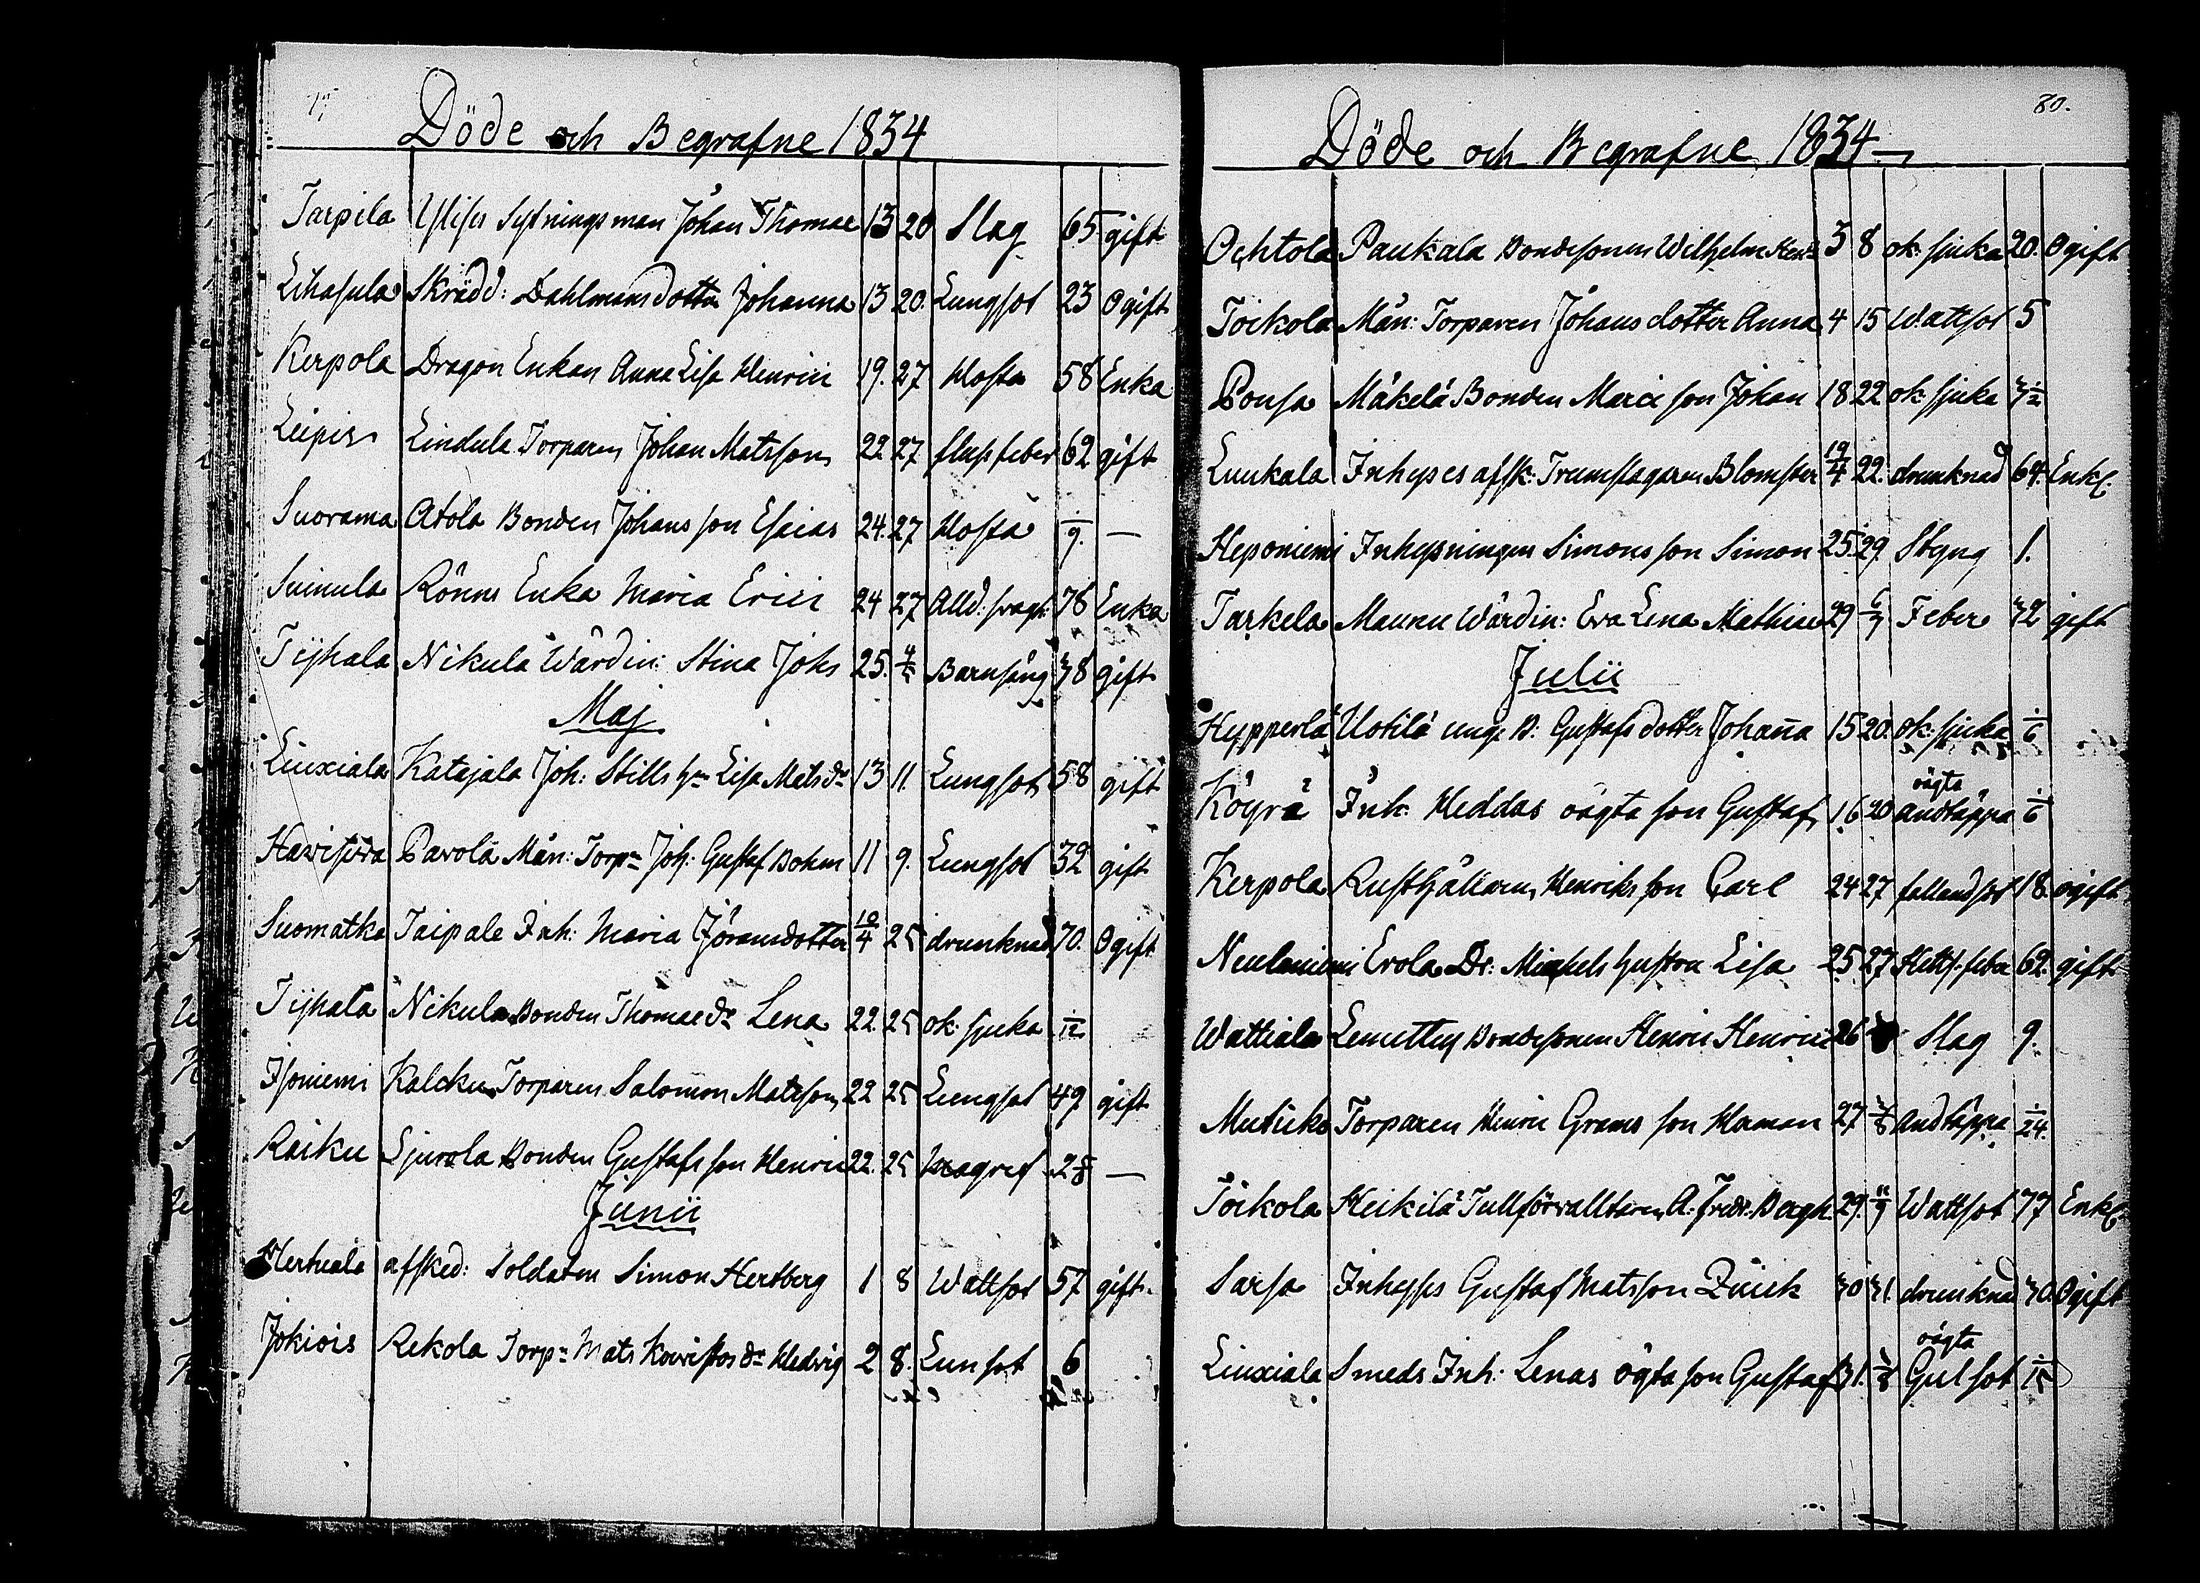 Döde och Begrafne 1834
Tarpila Ylises Sytningsman Johan Thomae 13 20 Slag 65 gift
Lihasula Skrädd: Dahlmans dotter Johanna 13 20. Lungsot 23 Ogift
Kerpola Dragon Enkan Anna Lisa Henrici 19. 27 Hosta 58 Enka
Leipis Lindula Torparen Johan Matsson 22 27 flussfeber 62 gift
Suorama Atola Bonden Johans son Esaias 24. 27 Hosta 1/9. —
Suinula Rönns Enka Maria Erici 24 27 Ålld: svagh: 78 Enka
Tijhala Nikula Wärdin: Stina Johs 25. 4/5 Barnsäng 38 gift
Maj
Liuxiala Katajala Joh: Stills h:n Lisa Mats d:r 13 11. Lungsot 58 gift
Havisova Pavola Mån: Torp:n Joh: Gustaf Bohm 11 9. Lungsot 32 gift
Suomatka Taipale Inh: Maria Jöransdotter 10/4 25 drunknad 70. Ogift
Tijhala Nikula Bonden Thomae d:r Lena 22. 25 ok: sjuka 1/12
Isoniemi Kalcku Torparen Salomon Matsson 22 25 Lungsot 49 gift
Raiku Sjurola Bonden Gustafs son Henric 22. 25 Magref 2 5/8 —
Junii
Hertuala afsked: Soldaten Simon Hertberg 1 8 Wattsot 57 gift.
Jokiois Rekola Torp:n Mats Koivistos d:r Hedvig 2 8. Lunsot 6
80.
Döde och Begrafne 1834
Ochtola Paukala Bondesonen Wilhelm 3 8 ok: sjuka 20. Ogift
Toikola Mån: Torparen Johans dotter Anna 4 15 Wattsot 5
Pousa Mäkelä Bonden Marci son Johan 18 22 ok: sjuka 3 1/2
Luukala Inhyses afsk: Trumslagaren Blomster 19/4 22. drunknad 64. Enkl.
Heponiemi Inhysningen Simons son Simon 25. 29. Styng 1.
Tarkela Maunu Wärdin: Eva Lena Mathiae 29 6/7 Feber 32 gift
Julii
Hypperlä Uotilä unge B: Gustafs dotter Johaña 15 20. ok: sjuka 1/6
Köyrä Inh: Heddas oägta son Gustaf 16 20 oägta andtäppa 1/6
Kerpola Rusthållaren Henriks son Carl 24 27 fallandsot 18. ogift
Neulaniemi Erola Dr: Michels hustru Lisa 25 27 Hetts. feber 62. gift
Wattiala Lemetty Bondesonen Henric Henrici 26 Slag 9.
Mutikko Torparen Henric Grams son Herman 27 3/8 Andtäppa 1/24.
Toikola Heikilä Tullförvalltaren A: Fredr: Bergh 29. 11/9 Wattsot 77 Enkl.
Sarsa Inhyses Gustaf Matsson Quick 30 31. drunknad 30. Ogift
Liuxiala Smeds Inh: Lenas ögta son Gustaf 31. 3/8 oägta Gulsot 1/12